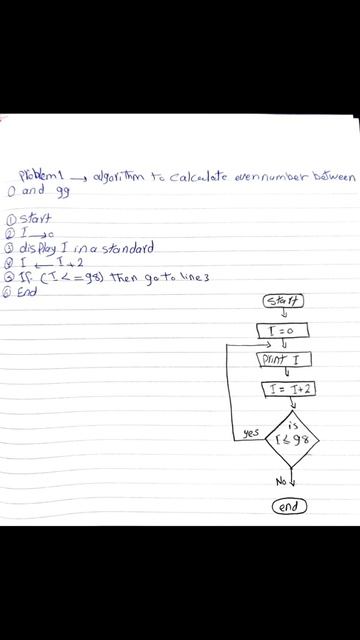 Problem 1 → algorithm to calculate even number between
0 and 99
① Start
② I → 0
③ display I in a standard
④ I ← I+2
⑤ If (I <= 98) then go to line 3
⑥ End
Start
I = 0
print I
I = I+2
is
I ≤ 98
yes
No
end